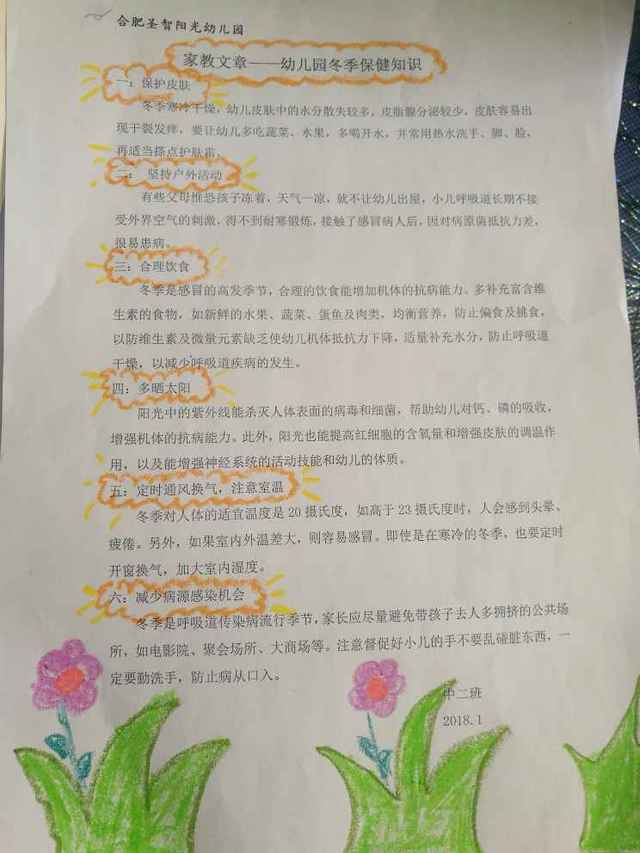 合肥圣智阳光幼儿园
家教文章——幼儿园冬季保健知识
一：保护皮肤
冬季寒冷干燥，幼儿皮肤中的水分散失较多，皮脂腺分泌较少，皮肤容易出
现干裂发痒，要让幼儿多吃蔬菜、水果，多喝开水，并常用热水洗手、脚、脸，
再适当搽点护肤霜。
二： 坚持户外活动
有些父母惟恐孩子冻着，天气一凉，就不让幼儿出屋，小儿呼吸道长期不接
受外界空气的刺激，得不到耐寒锻炼，接触了感冒病人后，因对病源菌抵抗力差，
很易患病。
三：合理饮食
冬季是感冒的高发季节，合理的饮食能增加机体的抗病能力。多补充富含维
生素的食物，如新鲜的水果、蔬菜、蛋鱼及肉类，均衡营养，防止偏食及挑食，
以防维生素及微量元素缺乏使幼儿机体抵抗力下降，适量补充水分，防止呼吸道
干燥，以减少呼吸道疾病的发生。
四：多晒太阳
阳光中的紫外线能杀灭人体表面的病毒和细菌，帮助幼儿对钙、磷的吸收，
增强机体的抗病能力。此外，阳光也能提高红细胞的含氧量和增强皮肤的调温作
用，以及能增强神经系统的活动技能和幼儿的体质。
五：定时通风换气，注意室温
冬季对人体的适宜温度是 20 摄氏度，如高于 23 摄氏度时，人会感到头晕、
疲倦。另外，如果室内外温差大，则容易感冒。即使是在寒冷的冬季，也要定时
开窗换气，加大室内湿度。
六：减少病源感染机会
冬季是呼吸道传染病流行季节，家长应尽量避免带孩子去人多拥挤的公共场
所，如电影院、聚会场所、大商场等。注意督促好小儿的手不要乱碰脏东西，一
定要勤洗手，防止病从口入。
中二班
2018.1